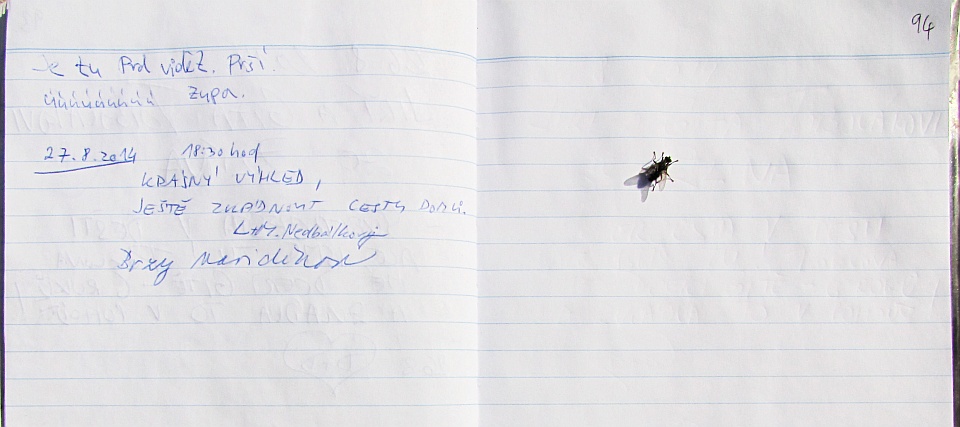 Je tu Prd vidět. Prší.
úúúúúúúúú župa.
27.8.2014 18:30 hod
KRÁSNÝ VÝHLED,
JEŠTĚ ZVLÁDNOUT CESTU DOMŮ.
L+M. Nedbálkovi
Brzy
94